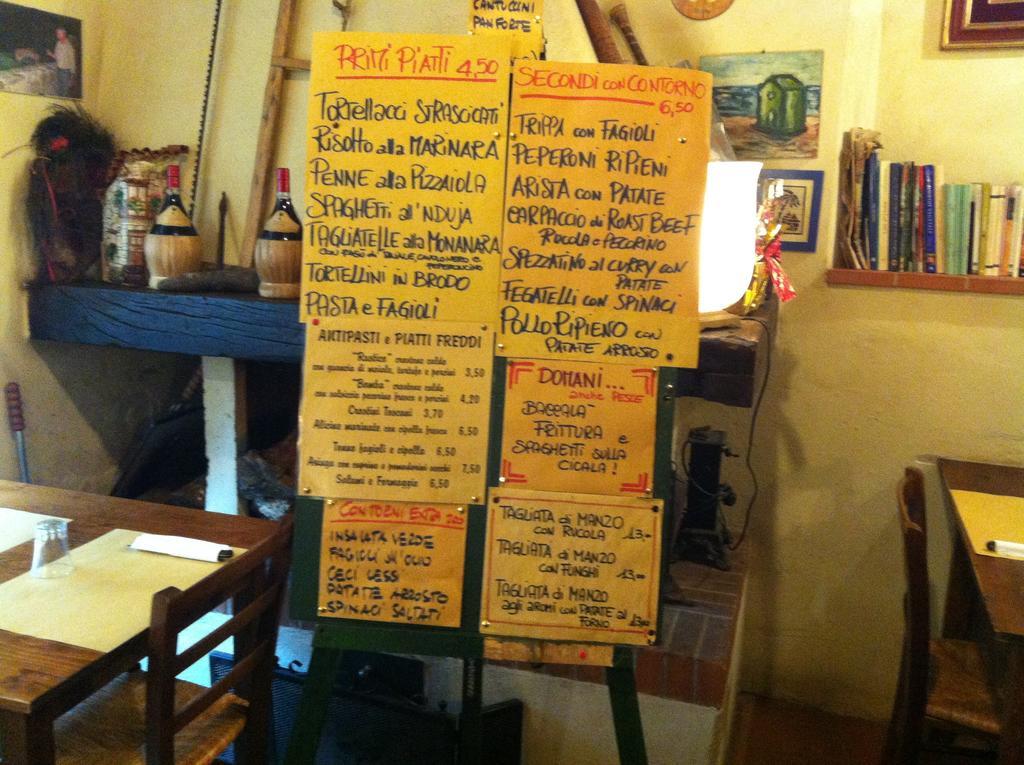 CANTUCCINI
PANFORTE
PRIMI PIATTI 4,50
TORTELLACCI STRASCICATI
RISOTTO alla MARINARA
PENNE alla PIZZAIOLA
SPAGHETTI all'NDUJA
TAGLIATELLE alla MONANARA
TORTELLINI IN BRODO
PASTA e FAGIOLI
SECONDI CON CONTORNO
6,50
TRIPPA CON FAGIOLI
PEPERONI RIPIENI
ARISTA CON PATATE
CARPACCIO di ROAST BEEF
RUCOLA e PECORINO
SPEZZATINO al CURRY CON
PATATE
FEGATELLI CON SPINACI
POLLO RIPIENO CON
PATATE ARROSTO
ANTIPASTI e PIATTI FREDDI
"Rustico" crostone caldo
con guancia di maiale, tartufo e porcini 3,50
"Bomba" crostone caldo
con salsiccia pecorino fresco e porcini 4,20
Crostini Toscani 3,70
Alicine marinate con cipolla fresca 6,50
Tonno fagioli e cipolla 6,50
Asiago con caprino e pomodorini secchi 7,50
Salumi e Formaggio 6,50
DOMANI...
anche PESCE
BACCALA'
FRITTURA e
SPAGHETTI SULLA
CICALA!
CONTORNI EXTRA
INSALATA VERDE
FAGIOLI ALL'OLIO
CECI LESSI
PATATE ARROSTO
SPINACI SALTATI
TAGLIATA di MANZO
CON RUCOLA 13,-
TAGLIATA di MANZO
CON FUNGHI 13,-
TAGLIATA di MANZO
agli aromi CON PATATE al
FORNO 13,00